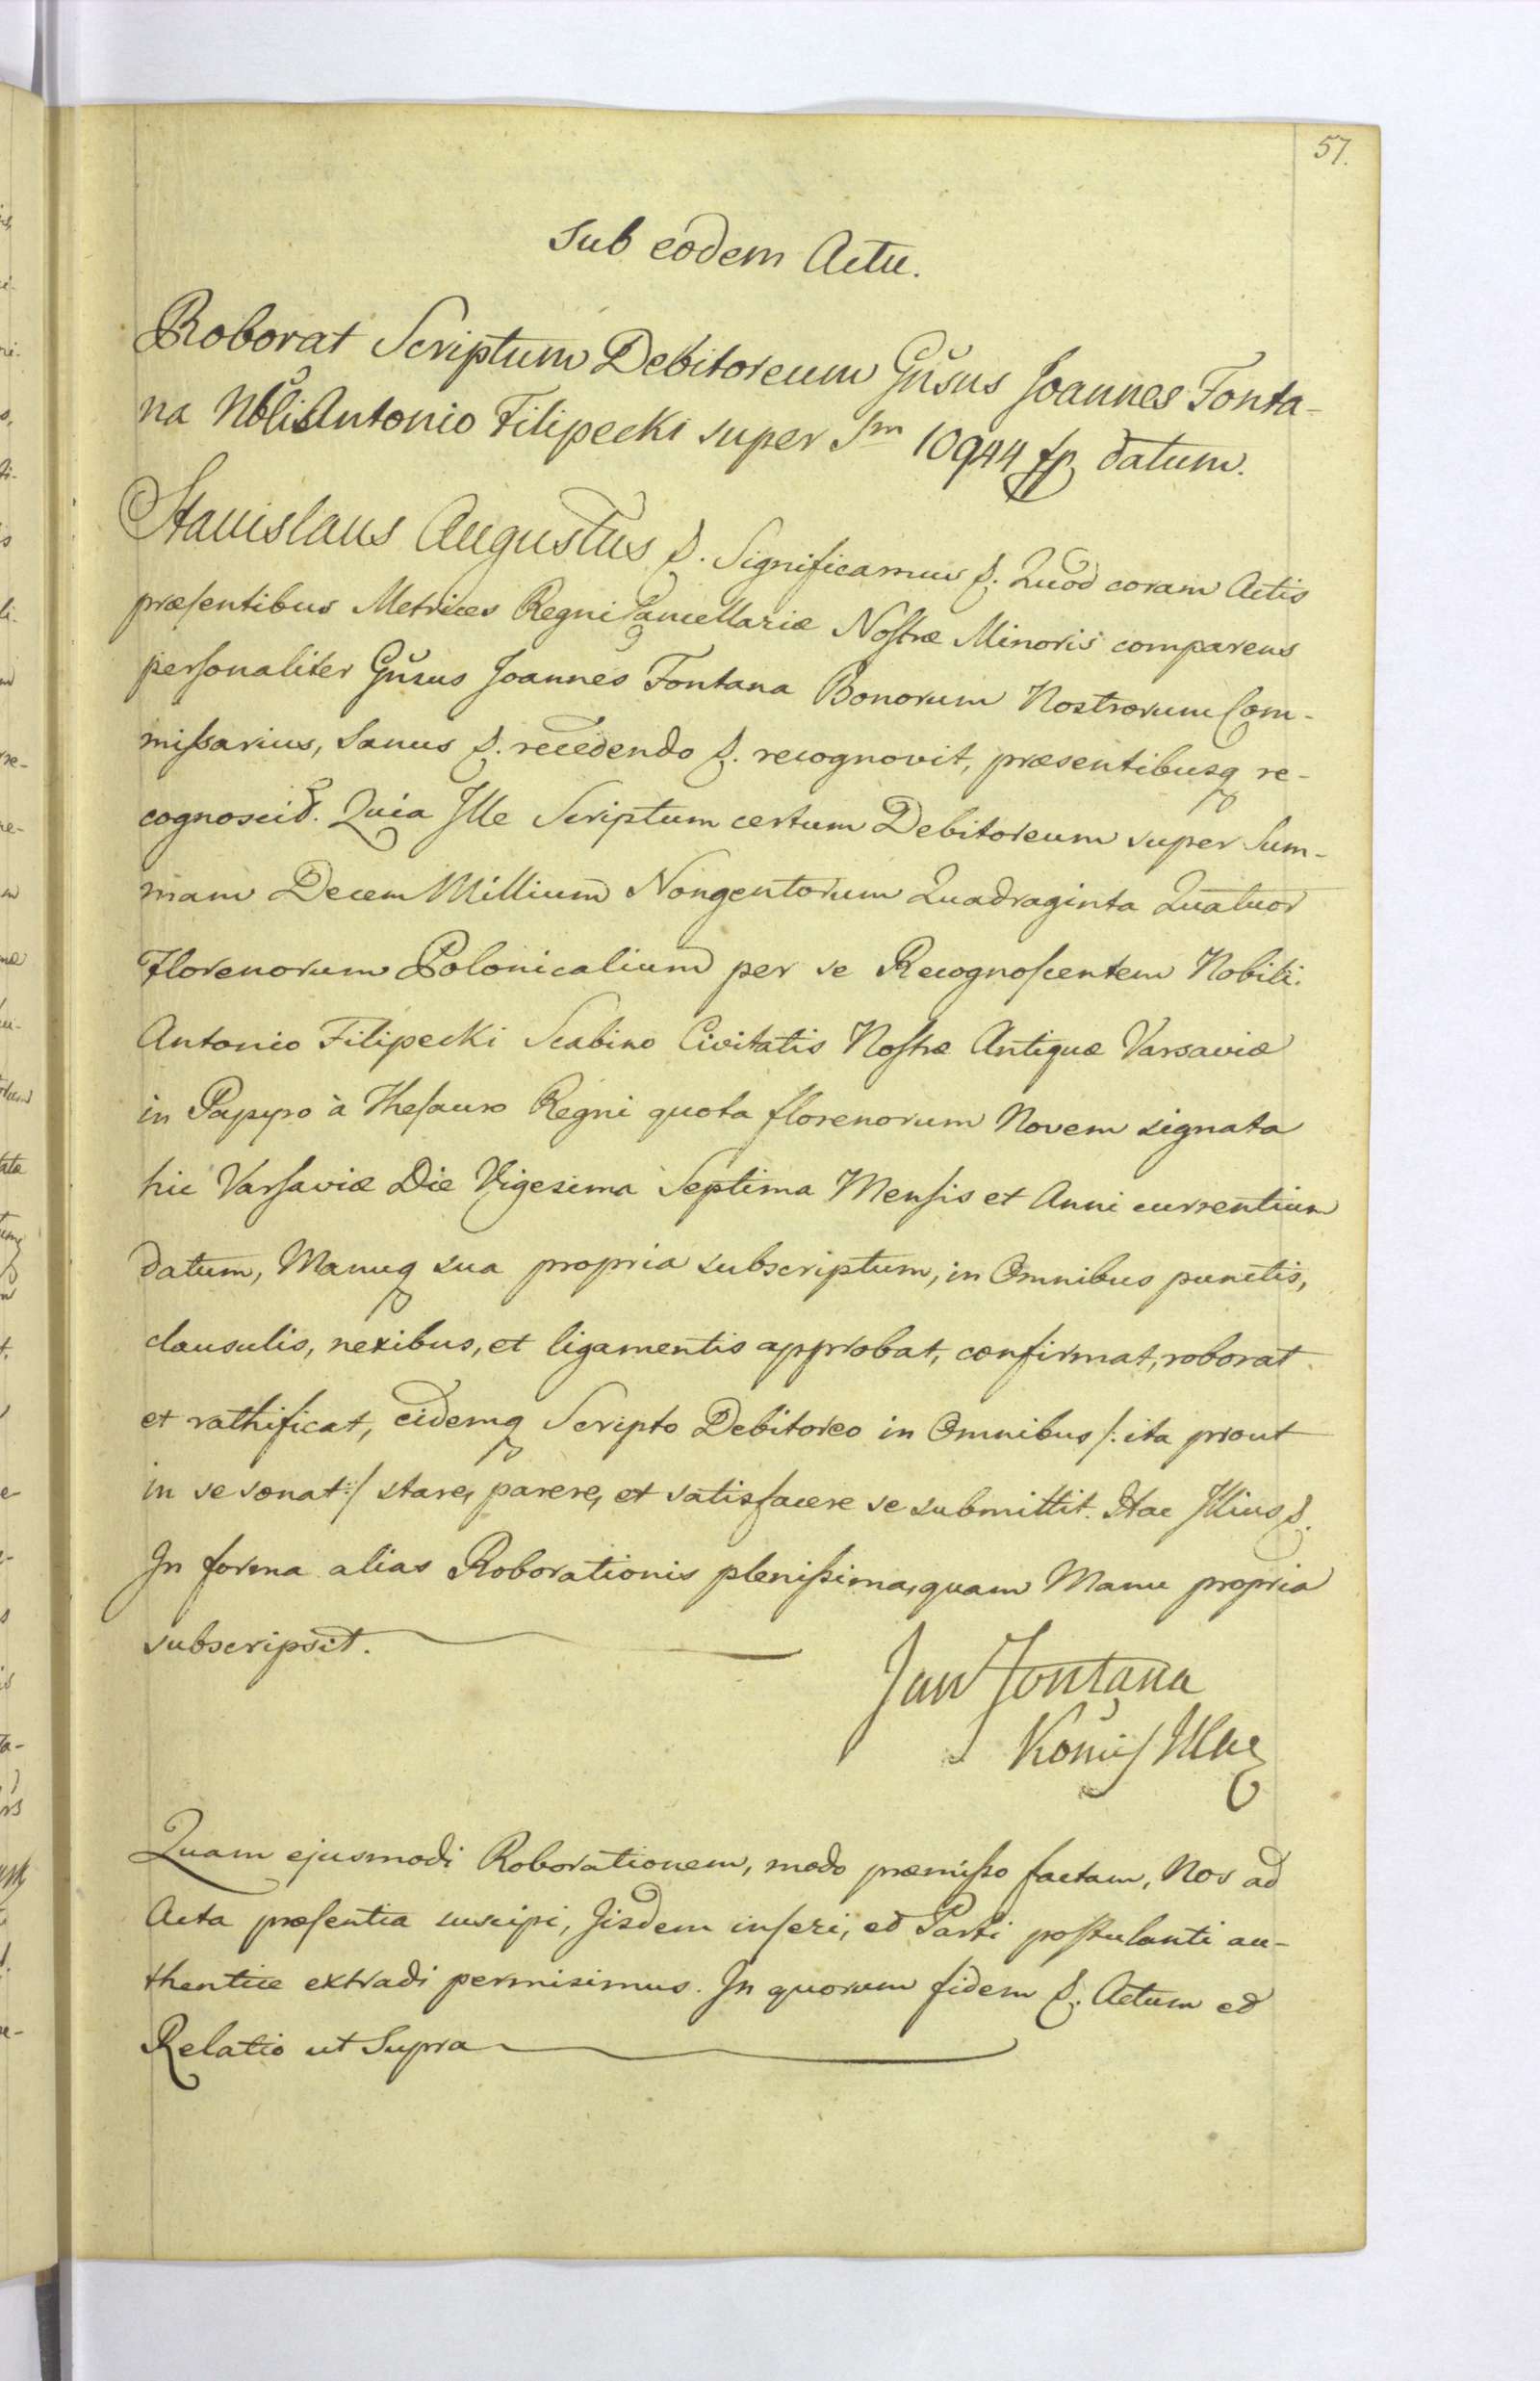 57.
Sub eodem Actu.
Roborat Scriptum Debitoreum Gnsus Joannes Fonta-
na Nbli Antonio Filipecki super Sm 10944 fp datum.
Stanislaus Augustus &. Significamus &. Quod coram Actis
præsentibus Metrices Regni Cancellariæ Nostræ Minoris comparens
personaliter Gnsus Joannes Fontana Bonorum Nostrorum Com-
missarius, Sanus &. recedendo &. recognovit, præsentibusq re-
cognoscit. Quia Ille Scriptum certum Debitoreum super Sum-
mam Decem Millium Nongentorum Quadraginta Quatuor
Florenorum Polonicalium per se Recognoscentem Nobili
Antonio Filipecki Scabino Civitatis Nostræ Antiquæ Varsaviæ
in Papyro à Thesauro Regni quota florenorum Novem signata
hic Varsaviæ Die Vigesima Septima Mensis et Anni currentium
datum, Manuq sua propria subscriptum, in Omnibus punctis,
clausulis, nexibus, et ligamentis approbat, confirmat, roborat
et rathificat, eidemq Scripto Debitoreo in Omnibus /: ita prout
in se sonat :/ stare, parere, et satisfacere se submittit. Hac Illius &.
In forma alias Roborationis plenissima, quam Manu propria
subscripsit.
Jan Fontana
Quam ejusmodi Roborationem, modo præmisso factam, Nos ad
Acta præsentia suscipi, Iisdem inseri, et Parti postulanti au-
thentice extradi permisimus. In quorum fidem &. Actum et
Relatio ut Supra